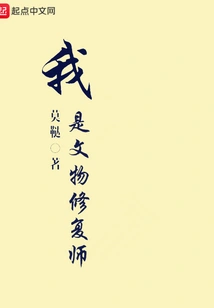 起点中文网
我
是文物修复师
莫 著